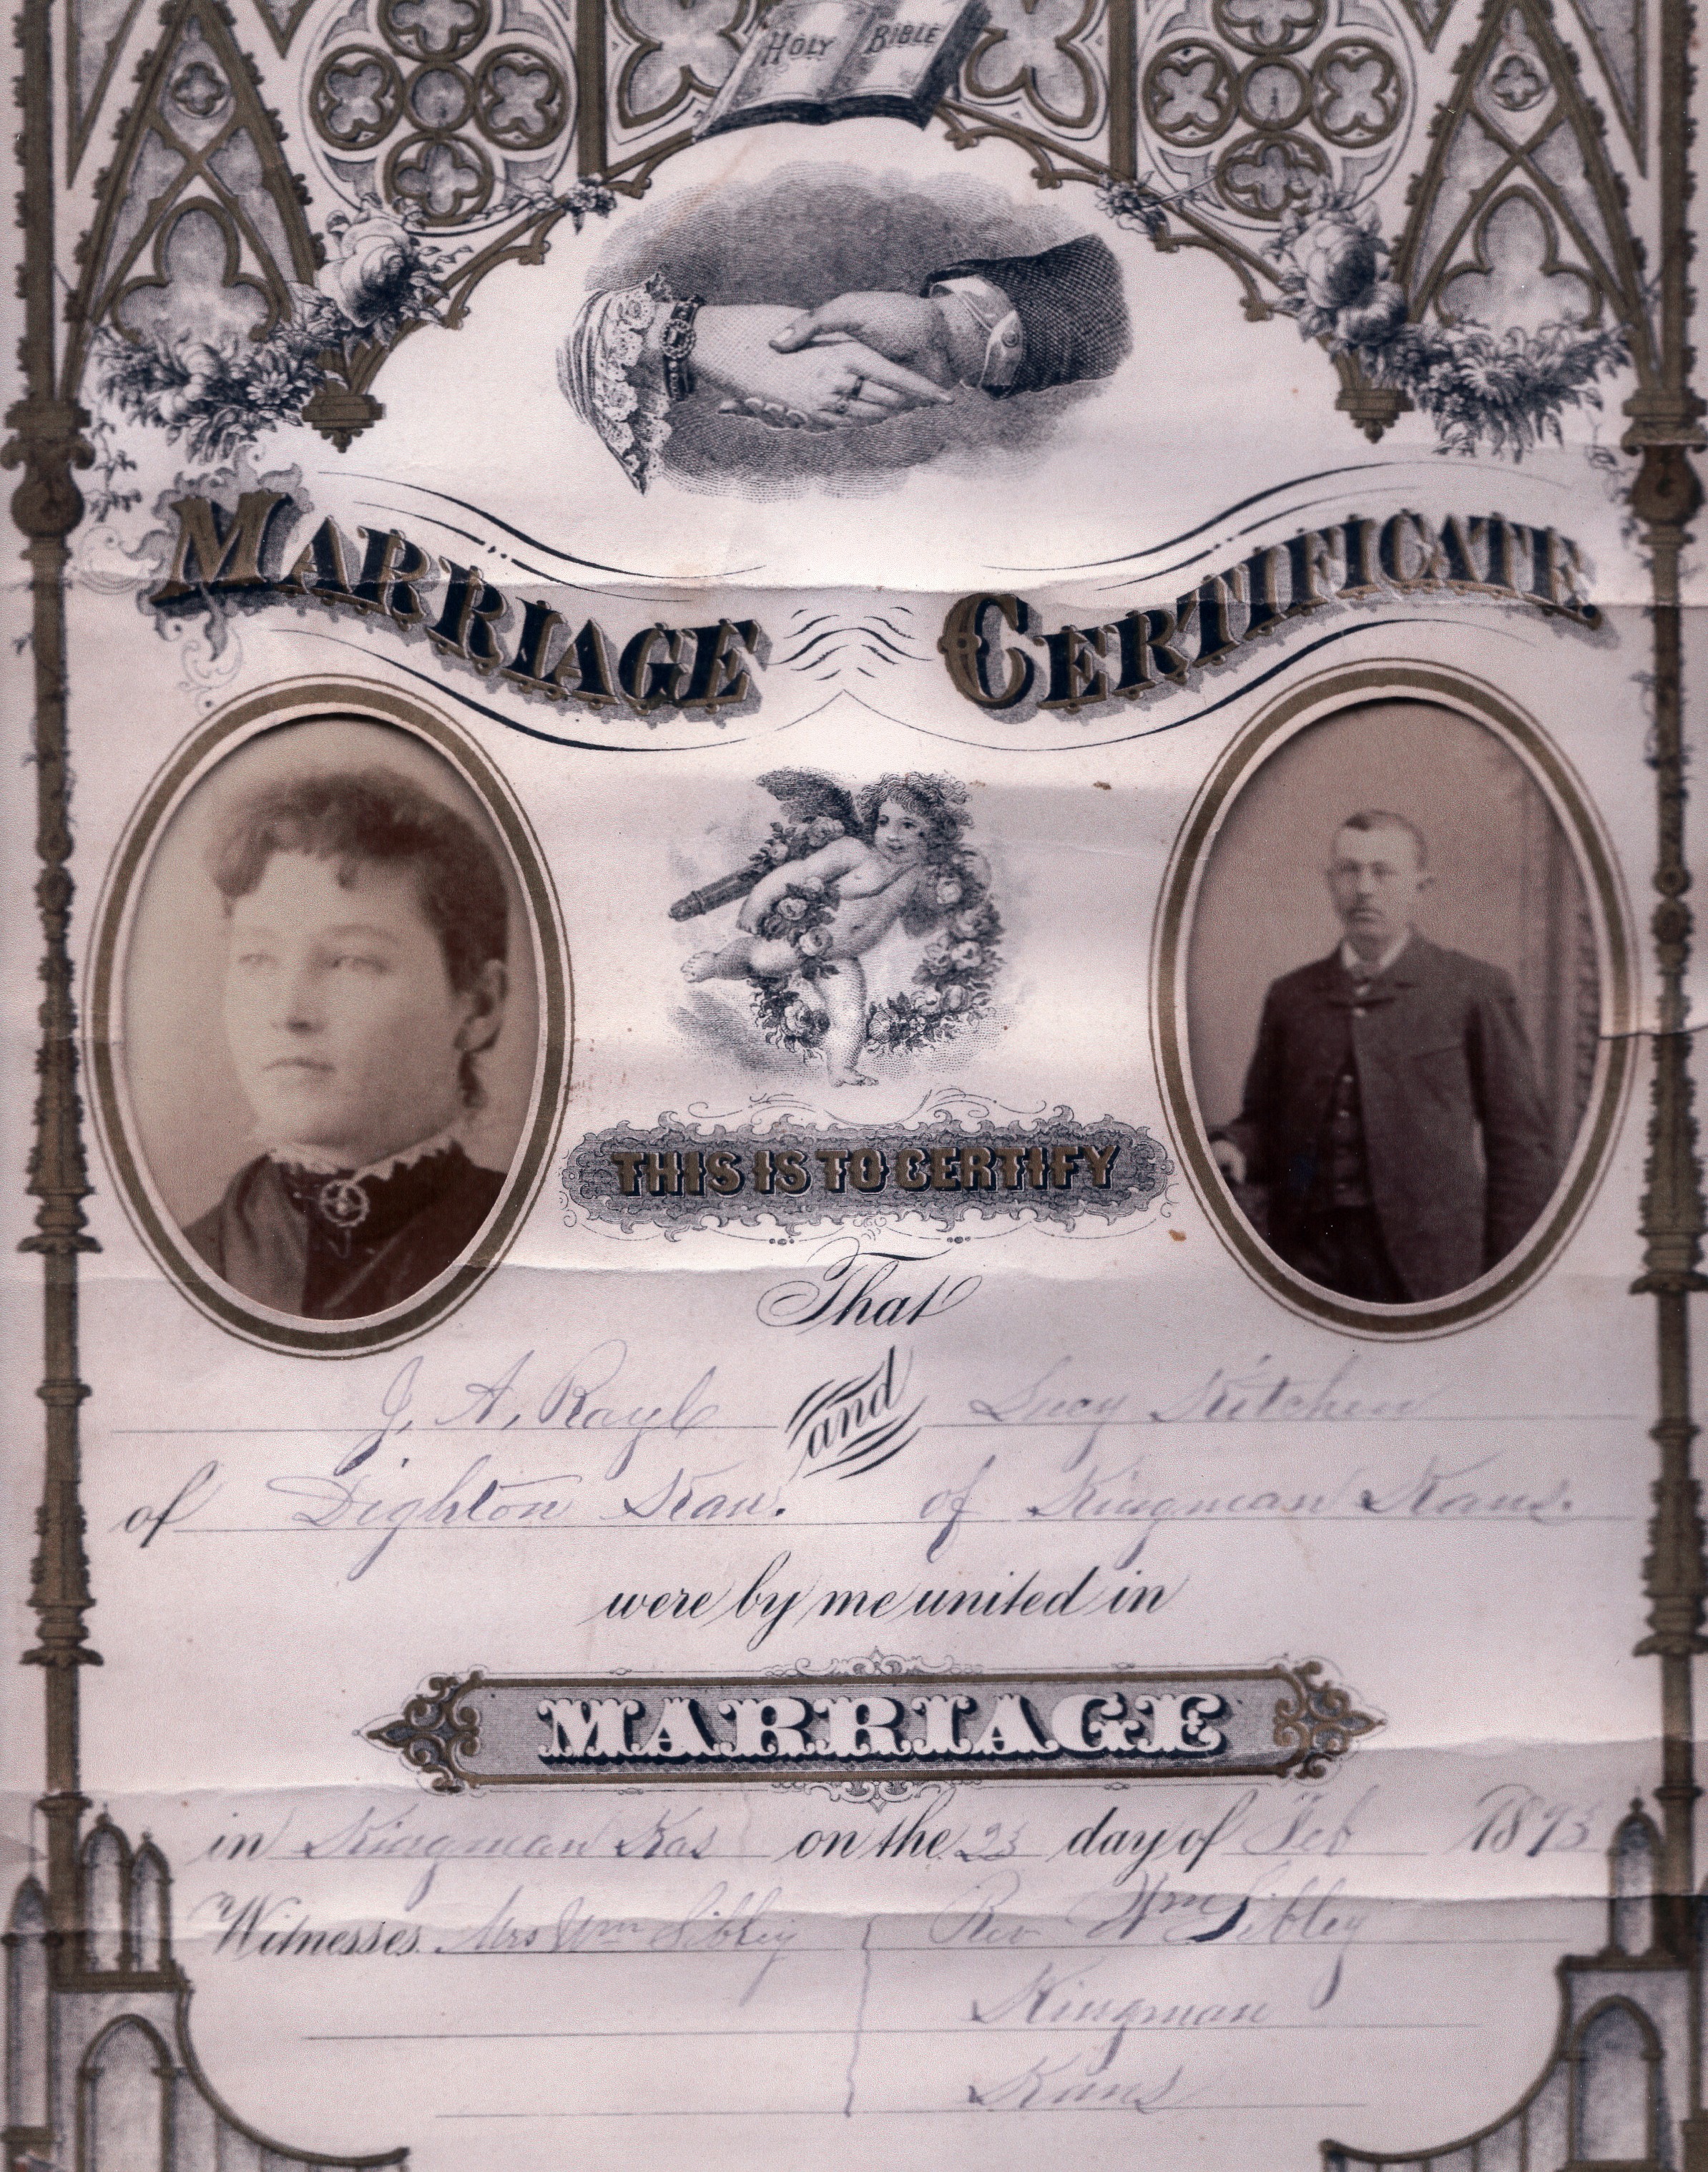 HOLY BIBLE
MARRIAGE CERTIFICATE
THIS IS TO CERTIFY
That
J. A. Rayl and Lucy Kitchen
of Dighton Kan. of Kingman Kans.
were by me united in
MARRIAGE
in Kingman Kas on the 23 day of Feb 1893
Witnesses Mrs Wm Sibley Rev Wm Sibley
Kingman
Kans